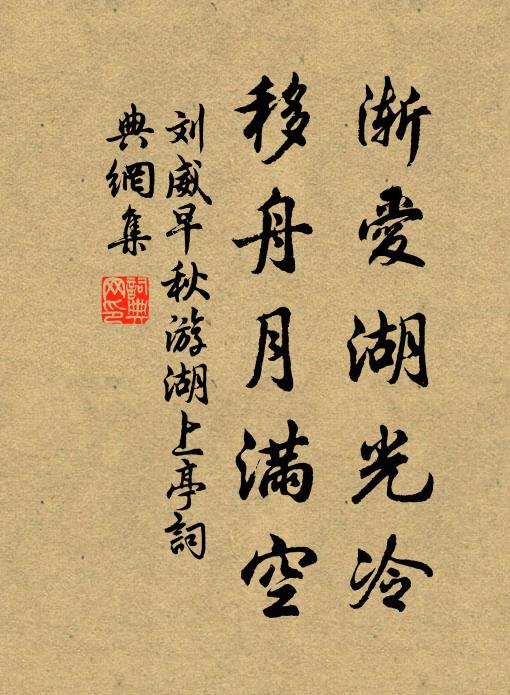 渐爱湖光冷
移舟月满空
刘威早秋游湖上亭詞
典網集
詞典網印